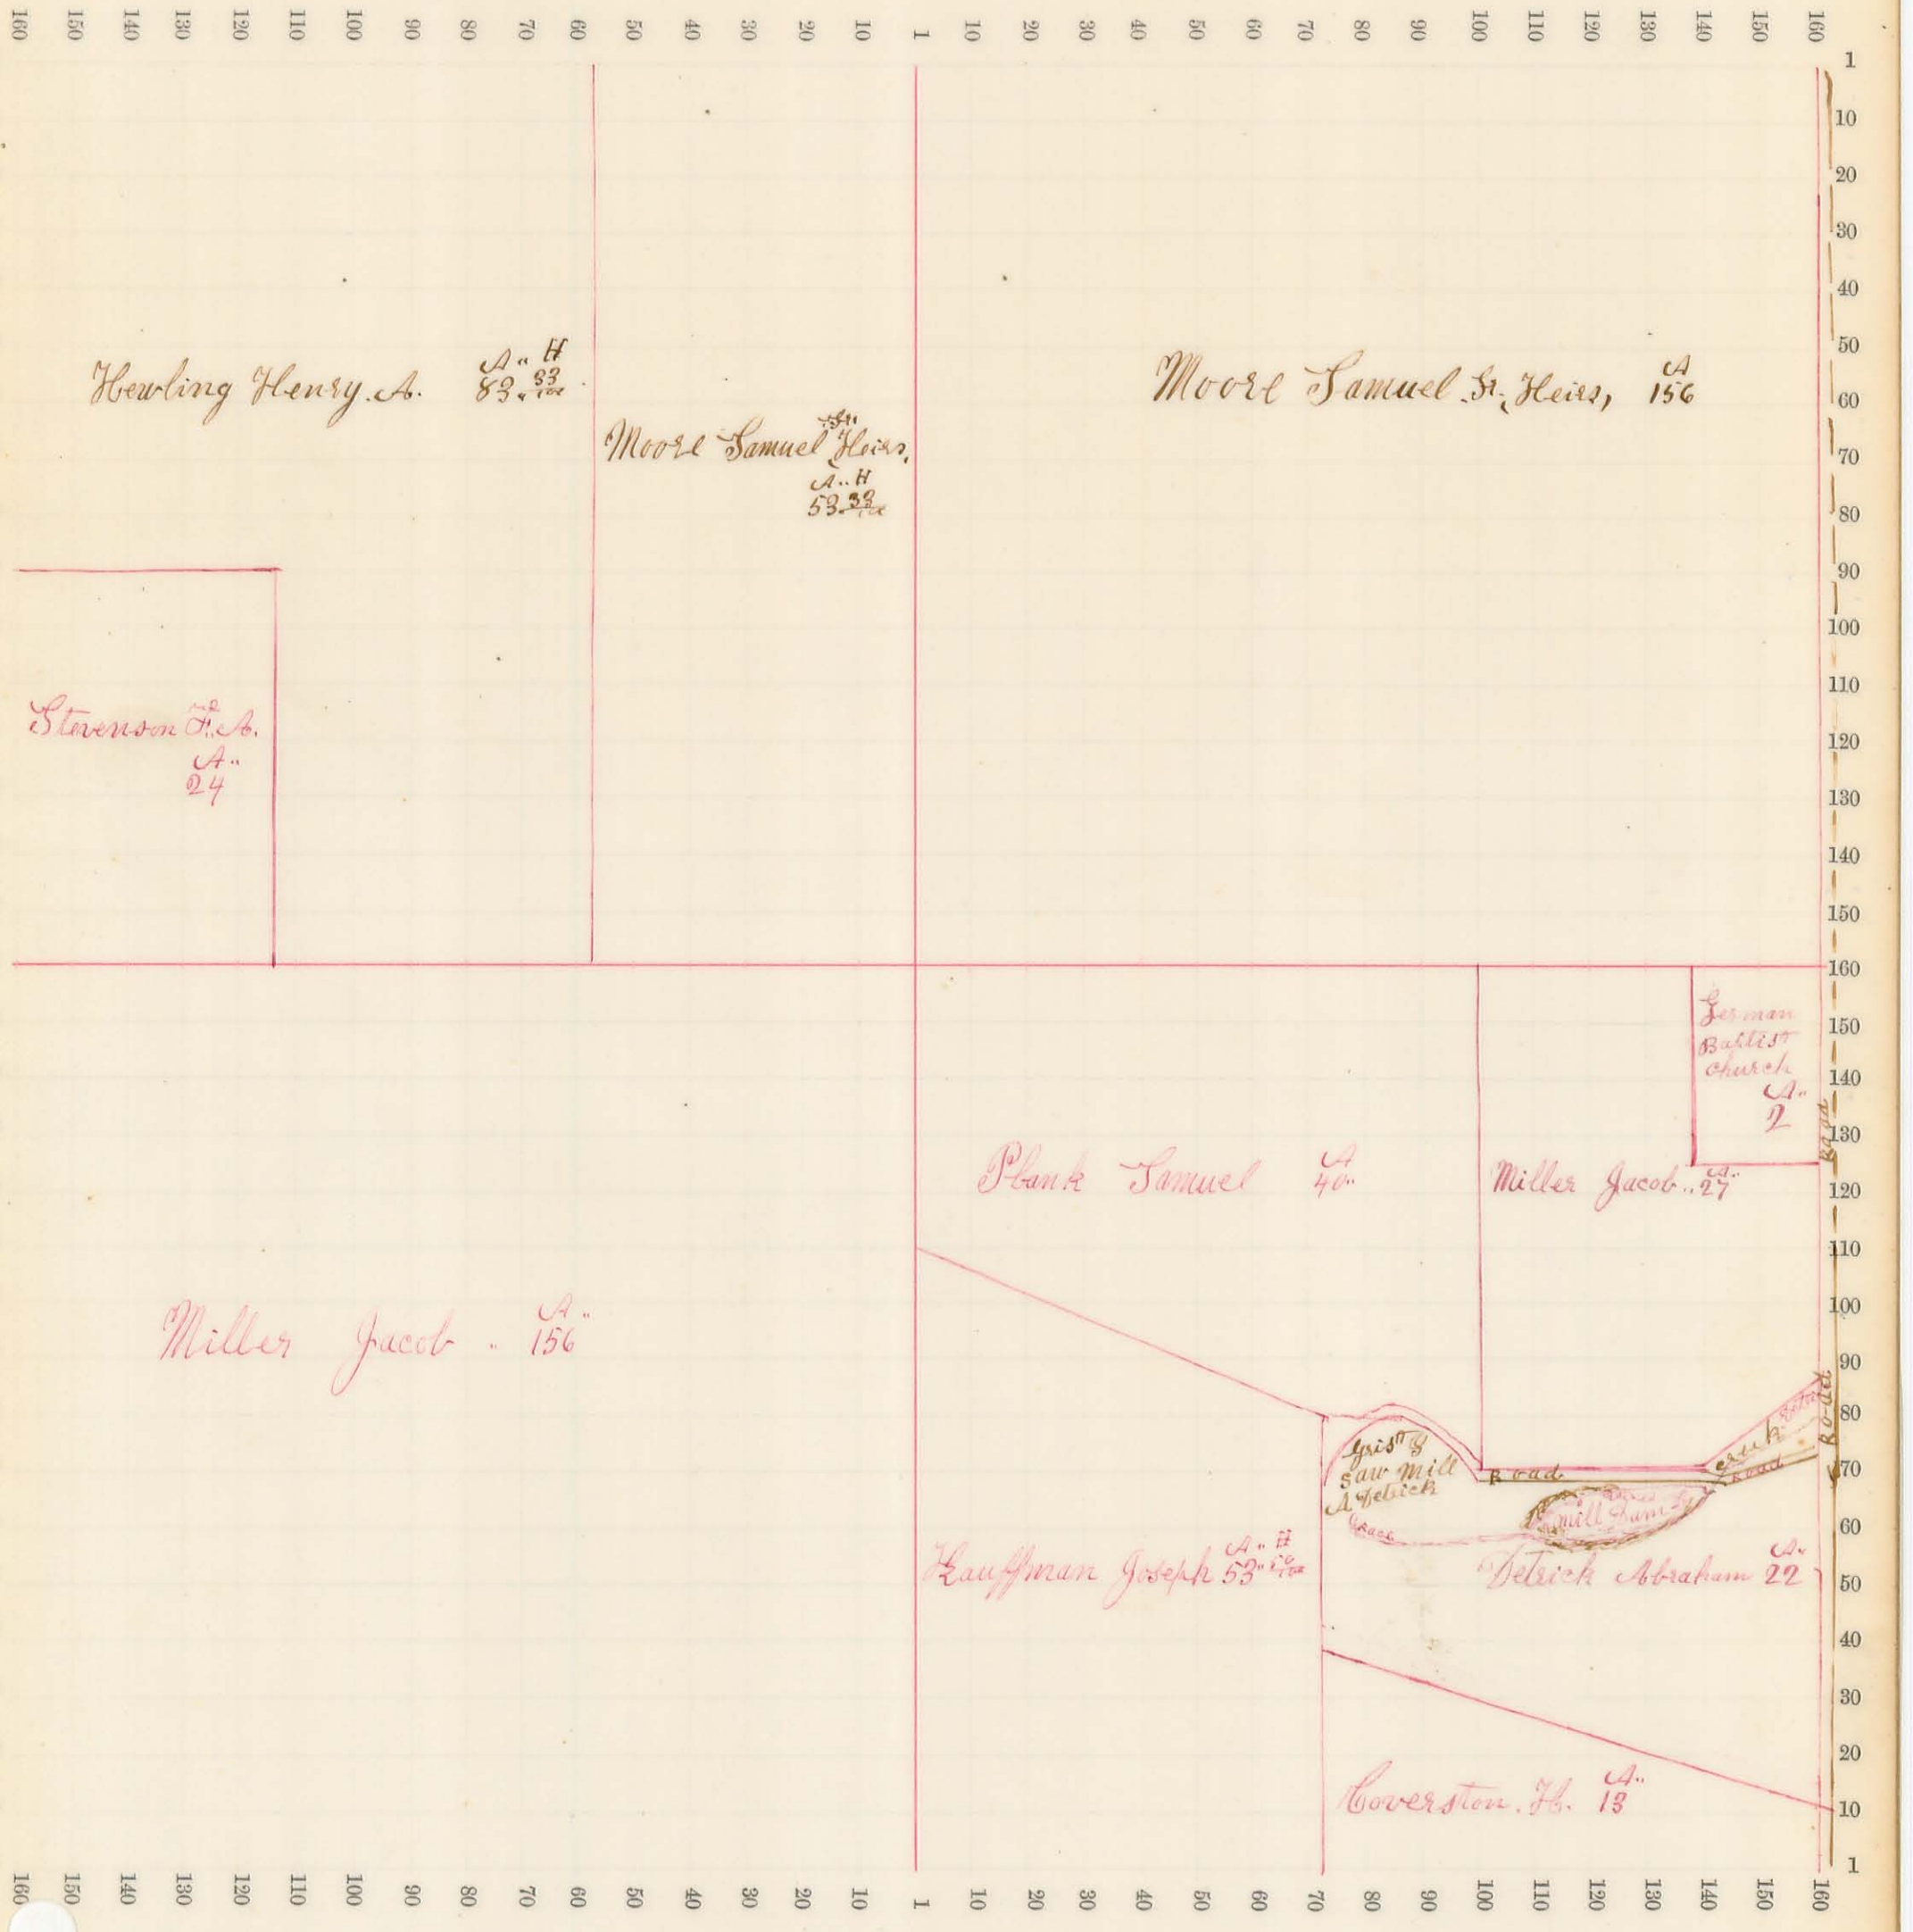 160 150 140 130 120 110 100 90 80 70 60 50 40 30 20 10 1 10 20 30 40 50 60 70 80 90 100 110 120 130 140 150 160
1
10
20
30
40
50
60
70
80
90
100
110
120
130
140
150
160
150
140
130
120
110
100
90
80
70
60
50
40
30
20
10
1
A" H
Hewling Henry. A. 83. 33/100
Sr.
Moore Samuel Heirs,
A.. H
53. 33/100
A
Moore Samuel Sr. Heirs, 156
Stevenson F. A.
A..
24
German
Babtist
Church
A..
2
Road
A
Plank Samuel 40..
A..
Miller Jacob .. 27
A..
Miller Jacob .. 156
Grist &
Saw Mill
A Detrick
Race
Road
Creek
Road
Road
Mill Dam
A.. H
Kauffman Joseph 53"
A..
Detrick Abraham 22
A..
Coverston. H. 13
160 150 140 130 120 110 100 90 80 70 60 50 40 30 20 10 1 10 20 30 40 50 60 70 80 90 100 110 120 130 140 150 160